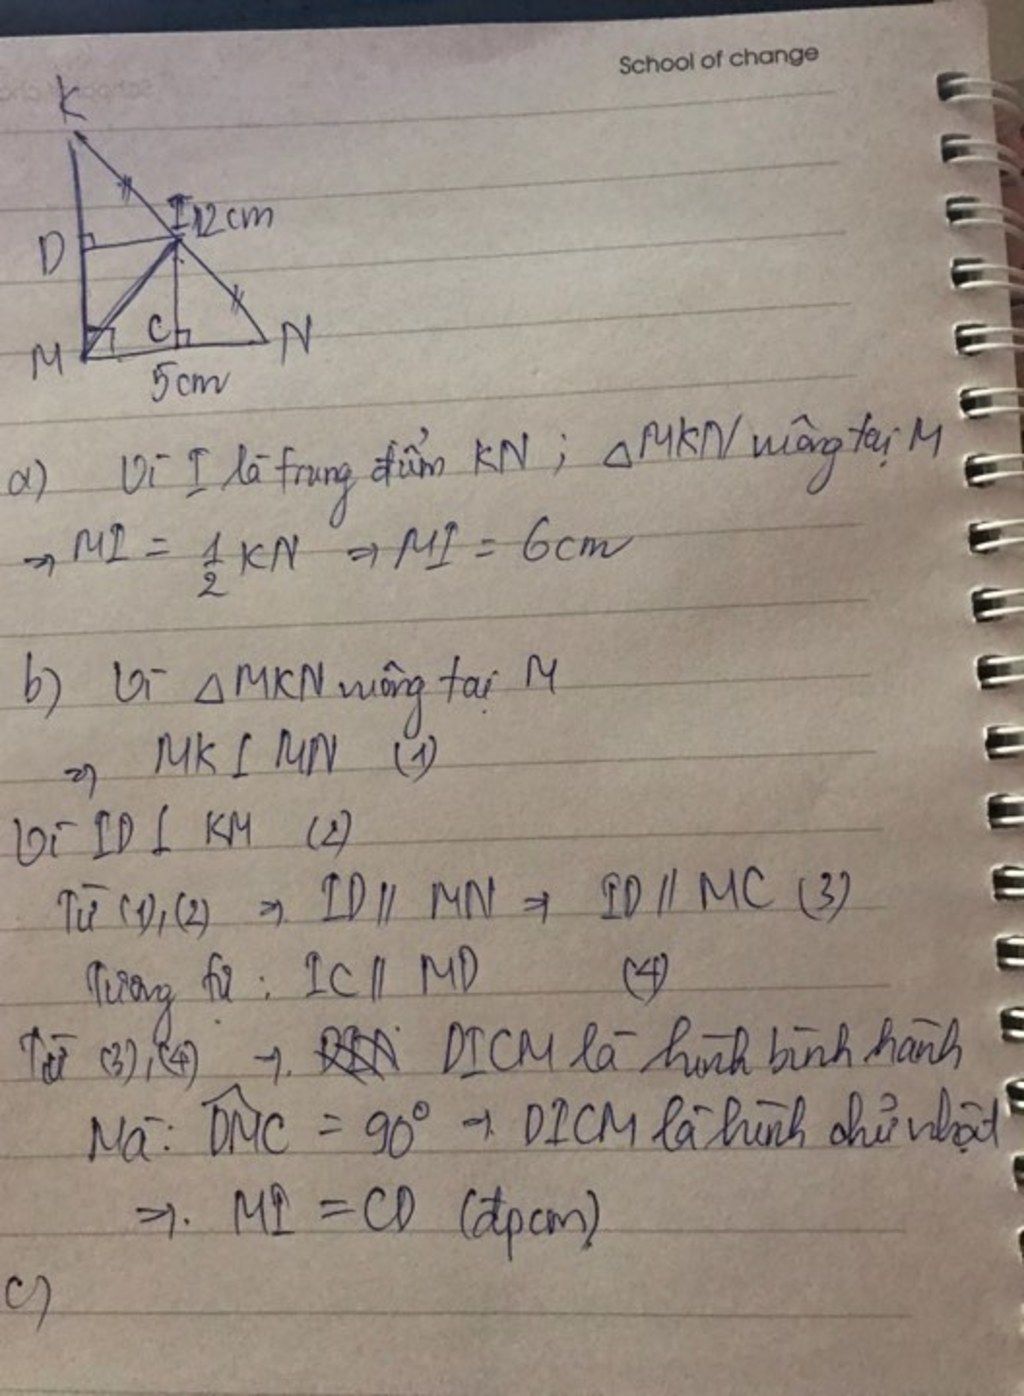 School of change
K
I 12cm
D
M C N
5cm
a) Vì I là trung điểm KN ; △MKN vuông tại M
⇒ MI = 1/2 KN ⇒ MI = 6cm
b) Vì △MKN vuông tại M
⇒ MK ⊥ MN (1)
Vì ID ⊥ KM (2)
Từ (1),(2) ⇒ ID // MN ⇒ ID // MC (3)
Tương tự : IC // MD (4)
Từ (3),(4) → DICM là hình bình hành
Mà: \widehat{DMC} = 90° → DICM là hình chữ nhật
⇒. MI = CD (đpcm)
c)